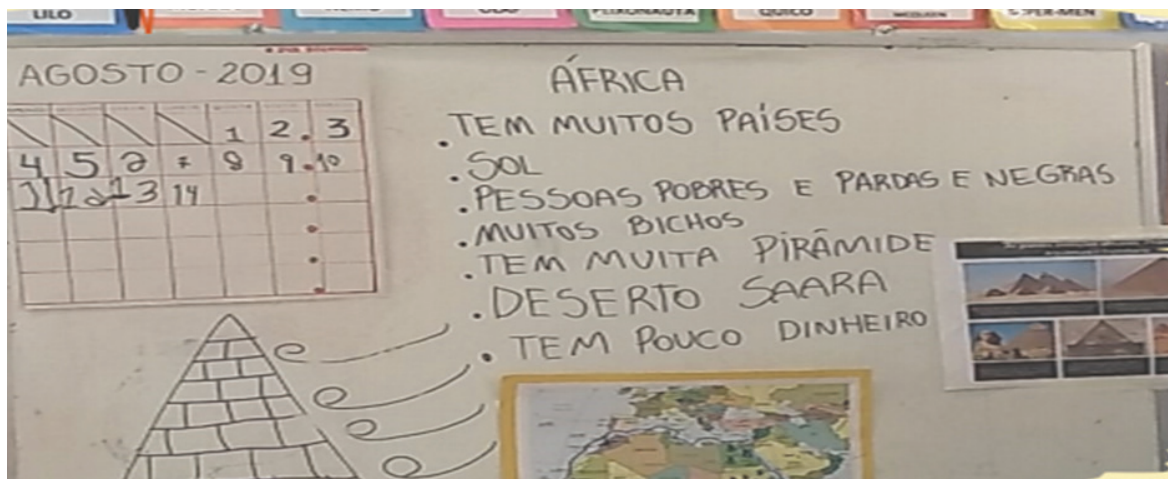 LILO
QUICO
AGOSTO - 2019
1 2 3
4 5 6 7 8 9 10
11 12 13 14
ÁFRICA
. TEM MUITOS PAÍSES
. SOL
. PESSOAS POBRES E PARDAS E NEGRAS
. MUITOS BICHOS
. TEM MUITA PIRÂMIDE
. DESERTO SAARA
. TEM POUCO DINHEIRO